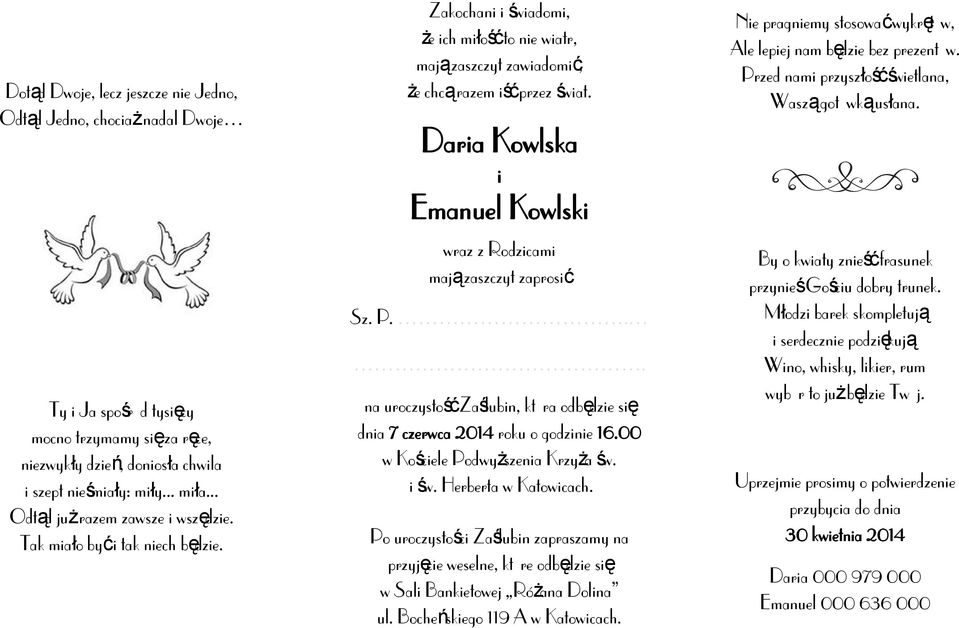 Dotąd Dwoje, lecz jeszcze nie Jedno,
Odtąd Jedno, chociaż nadal Dwoje…
Ty i Ja spośród tysięcy
mocno trzymamy się za ręce,
niezwykły dzień, doniosła chwila
i szept nieśmiały: miły... miła...
Odtąd już razem zawsze i wszędzie.
Tak miało być i tak niech będzie.
Zakochani i świadomi,
że ich miłość to nie wiatr,
mają zaszczyt zawiadomić,
że chcą razem iść przez świat.
Daria Kowlska
i
Emanuel Kowlski
wraz z Rodzicami
mają zaszczyt zaprosić
Sz. P. ……………………………………
……………………………………………
na uroczystość Zaślubin, która odbędzie się
dnia 7 czerwca 2014 roku o godzinie 16.00
w Kościele Podwyższenia Krzyża św.
i św. Herberta w Katowicach.
Po uroczystości Zaślubin zapraszamy na
przyjęcie weselne, które odbędzie się
w Sali Bankietowej „Różana Dolina”
ul. Bocheńskiego 119 A w Katowicach.
Nie pragniemy stosować wykrętów,
Ale lepiej nam będzie bez prezentów.
Przed nami przyszłość świetlana,
Waszą gotówką usłana.
By o kwiaty znieść frasunek
przynieś Gościu dobry trunek.
Młodzi barek skompletują
i serdecznie podziękują
Wino, whisky, likier, rum
wybór to już będzie Twój.
Uprzejmie prosimy o potwierdzenie
przybycia do dnia
30 kwietnia 2014
Daria 000 979 000
Emanuel 000 636 000